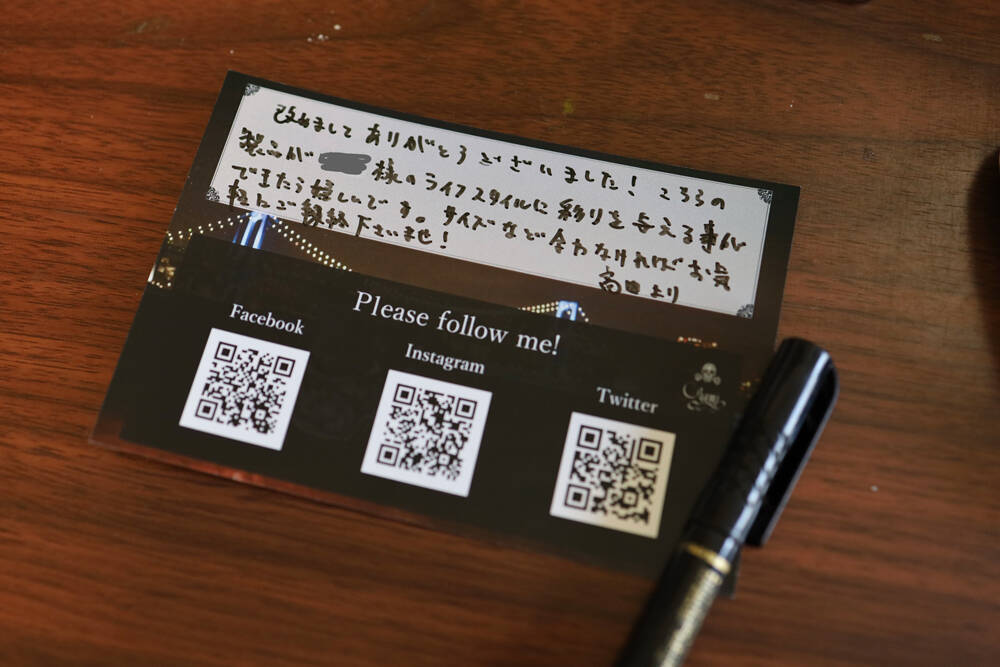 改めまして ありがとうございました! こちらの
製品が 様のライフスタイルに彩りを与える事が
できたら嬉しいです。サイズなど合わなければお気
軽にご連絡下さいませ!
高田より
Please follow me!
Facebook
Instagram
Twitter